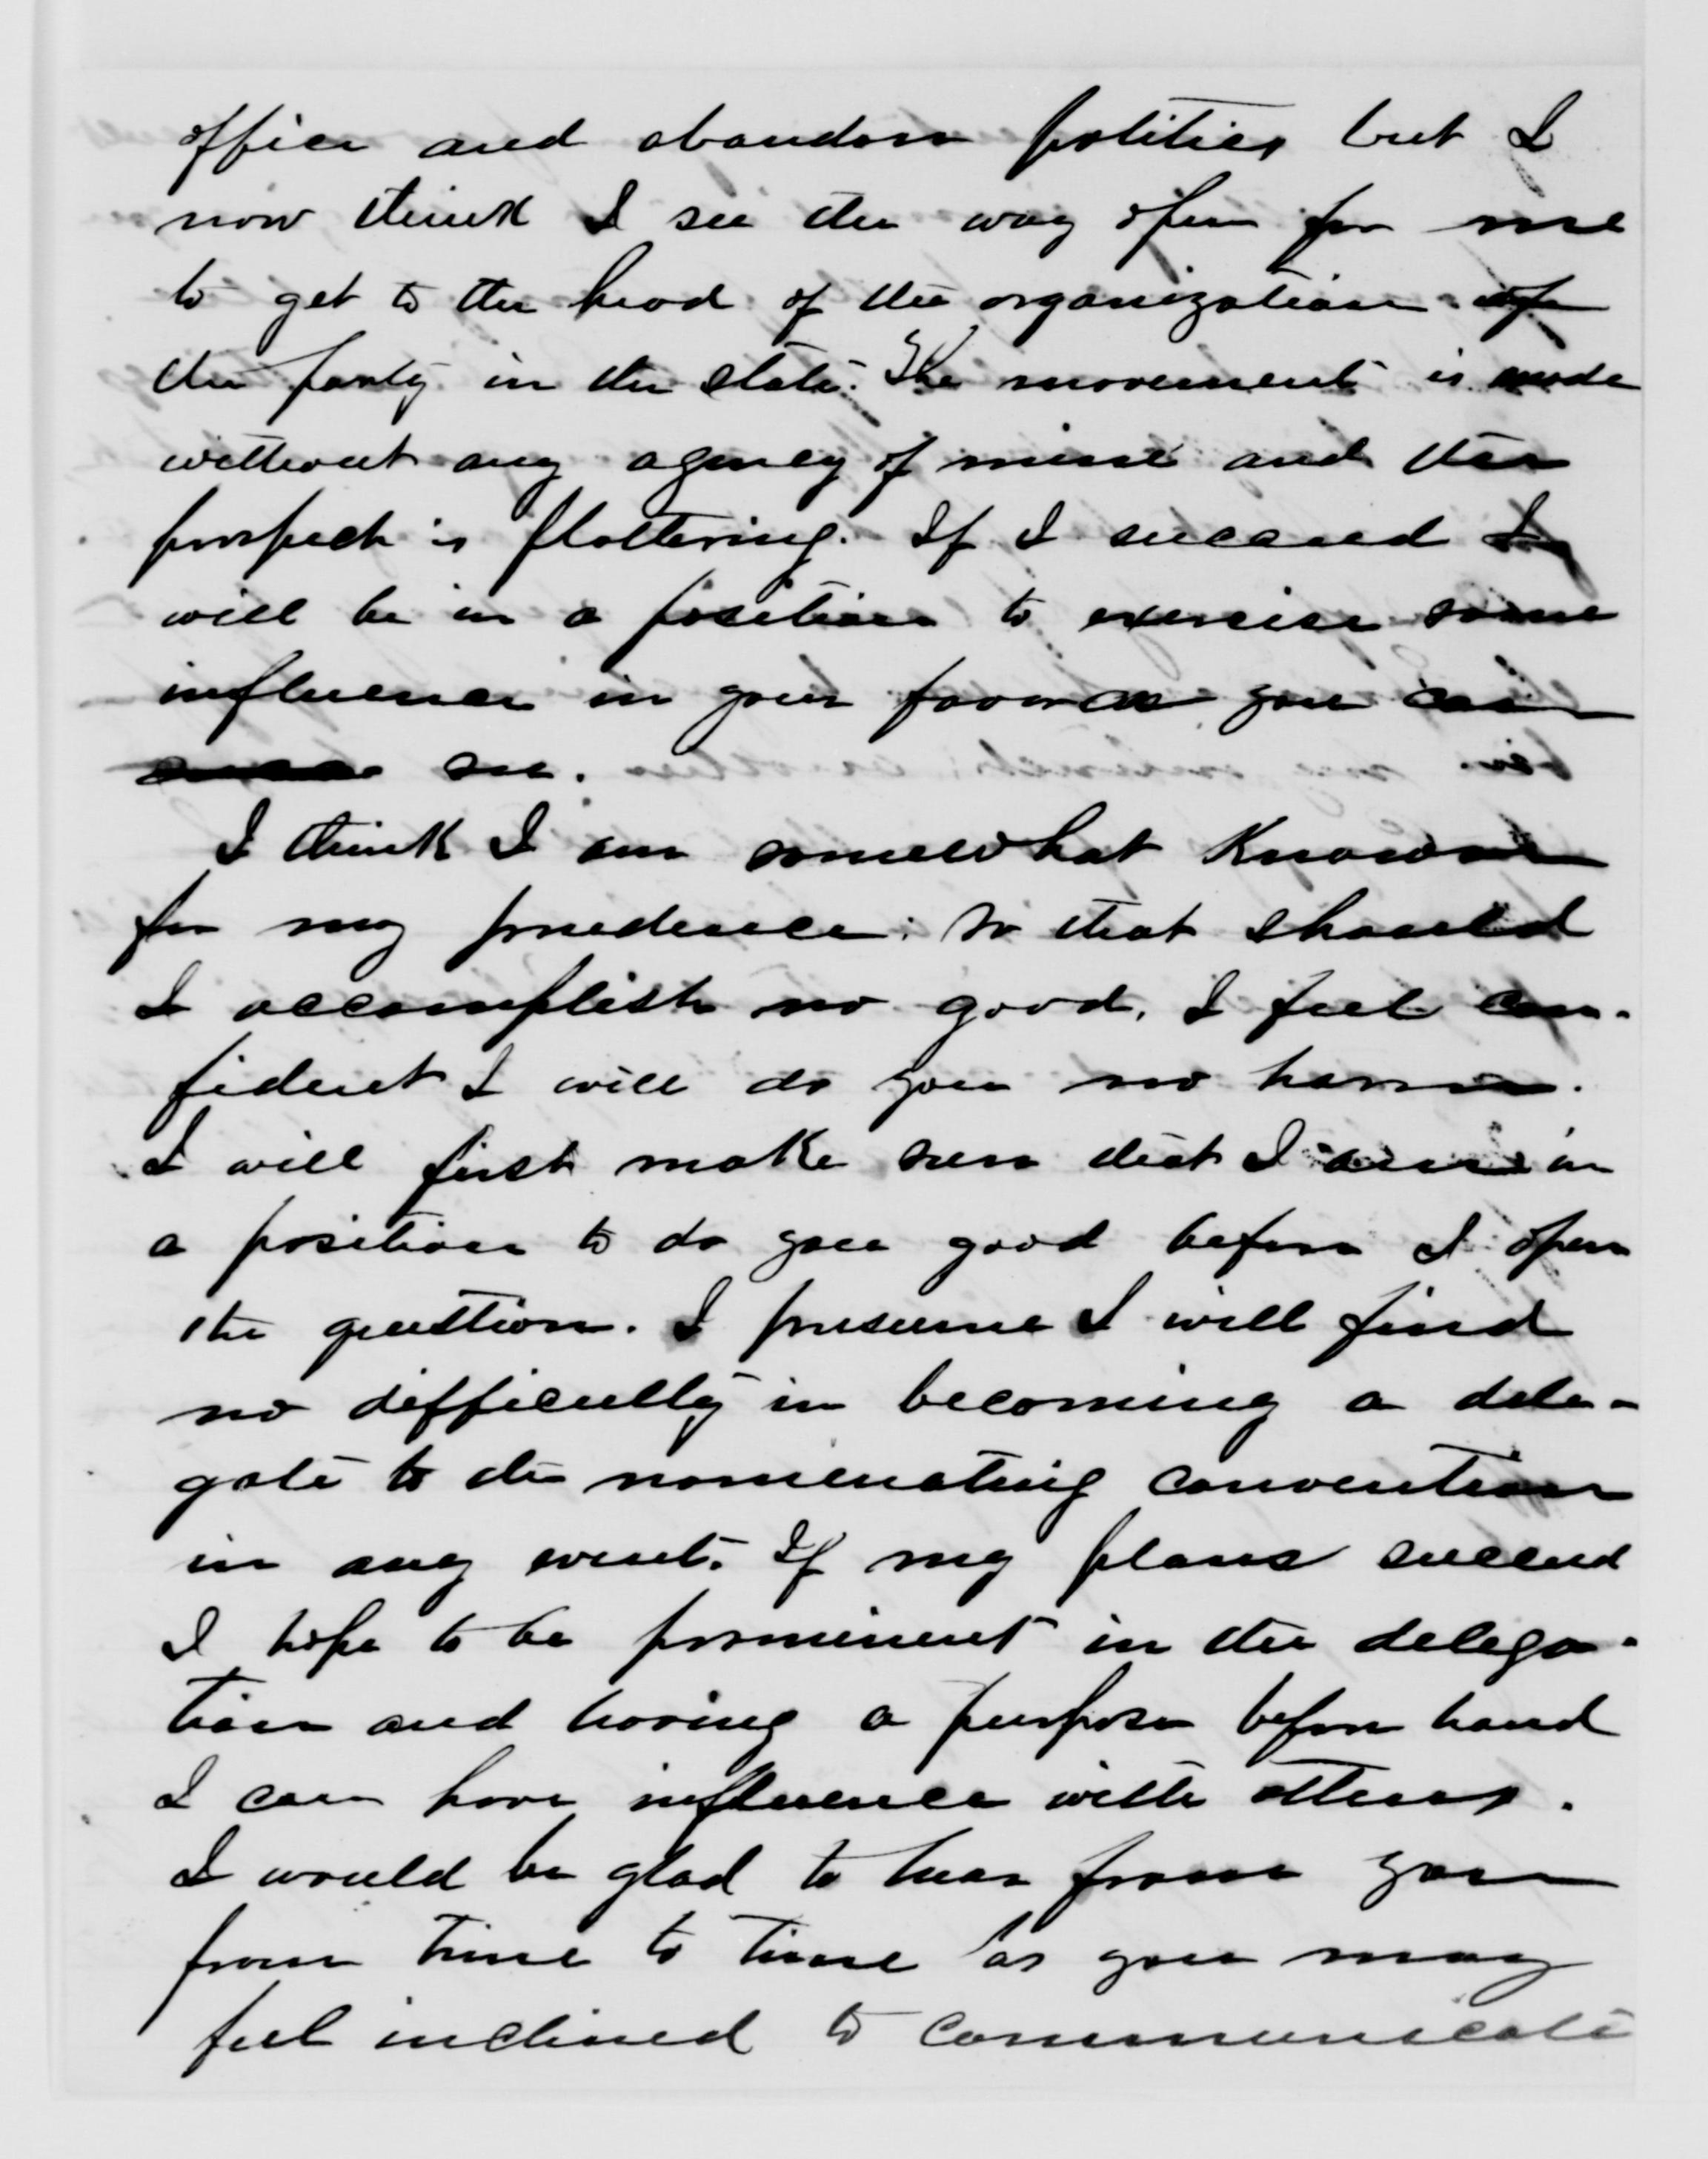 office and abandon politics but I
now think I see the way open for me
to get to the head of the organization of
the party in the state. The movement is made
without any agency of mine and the
prospect is flattering. If I succeed I
will be in a position to exercise some
influence in your favor as you can
see.
I think I am somewhat known
for my prudence; so that should
I accomplish no good, I feel con-
fident I will do you no harm.
I will first make sure that I am in
a position to do you good before I open
the question. I presume I will find
no difficulty in becoming a dele-
gate to the nominating convention
in any event. If my plans succeed
I hope to be prominent in the delega-
tion and having a purpose before hand
I can have influence with others.
I would be glad to hear from you
from time to time as you may
feel inclined to communicate